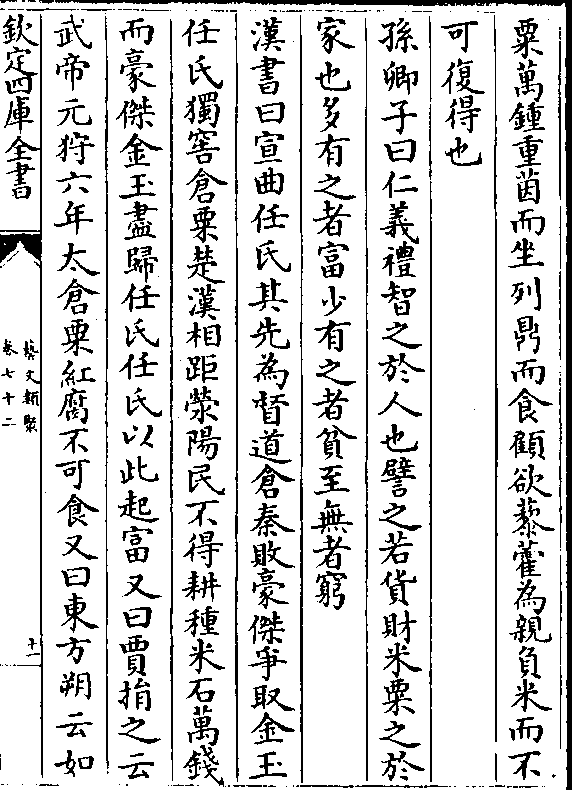 粟萬鍾重茵而坐列鼎而食顧欲藜藿為親負米而不
可復得也
孫卿子曰仁義禮智之於人也譬之若貨財米粟之於
家也多有之者富少有之者貧至無者窮
漢書曰宣曲任氏其先為督道倉秦敗豪傑爭取金玉
任氏獨窖倉粟楚漢相距滎陽民不得耕種米石萬錢
而豪傑金玉盡歸任氏任氏以此起富又曰賈捐之云
武帝元狩六年太倉粟紅腐不可食又曰東方朔云如
欽定四庫全書
藝文類聚
卷七十二
十一